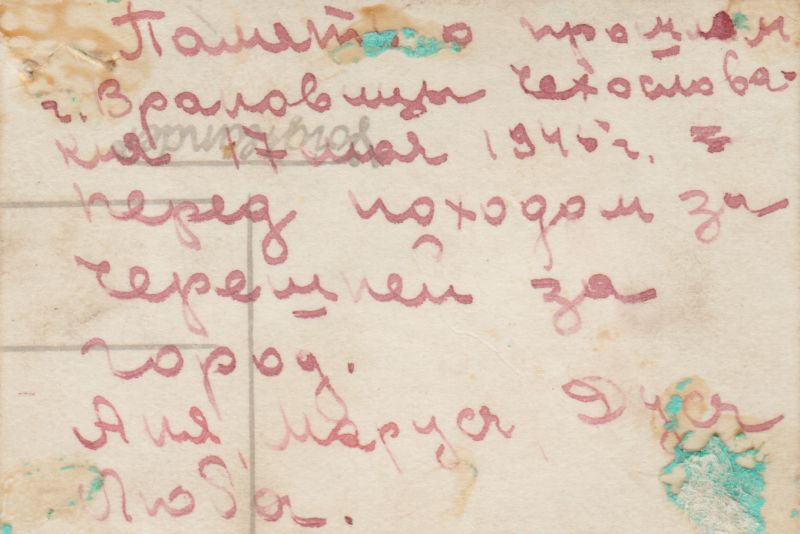 Память о прошлом
г. Врановицы Чехослова-
кия 17 мая 1945 г.
перед походом за
черешней за
город.
Аня Маруся, Дуся
Люба.